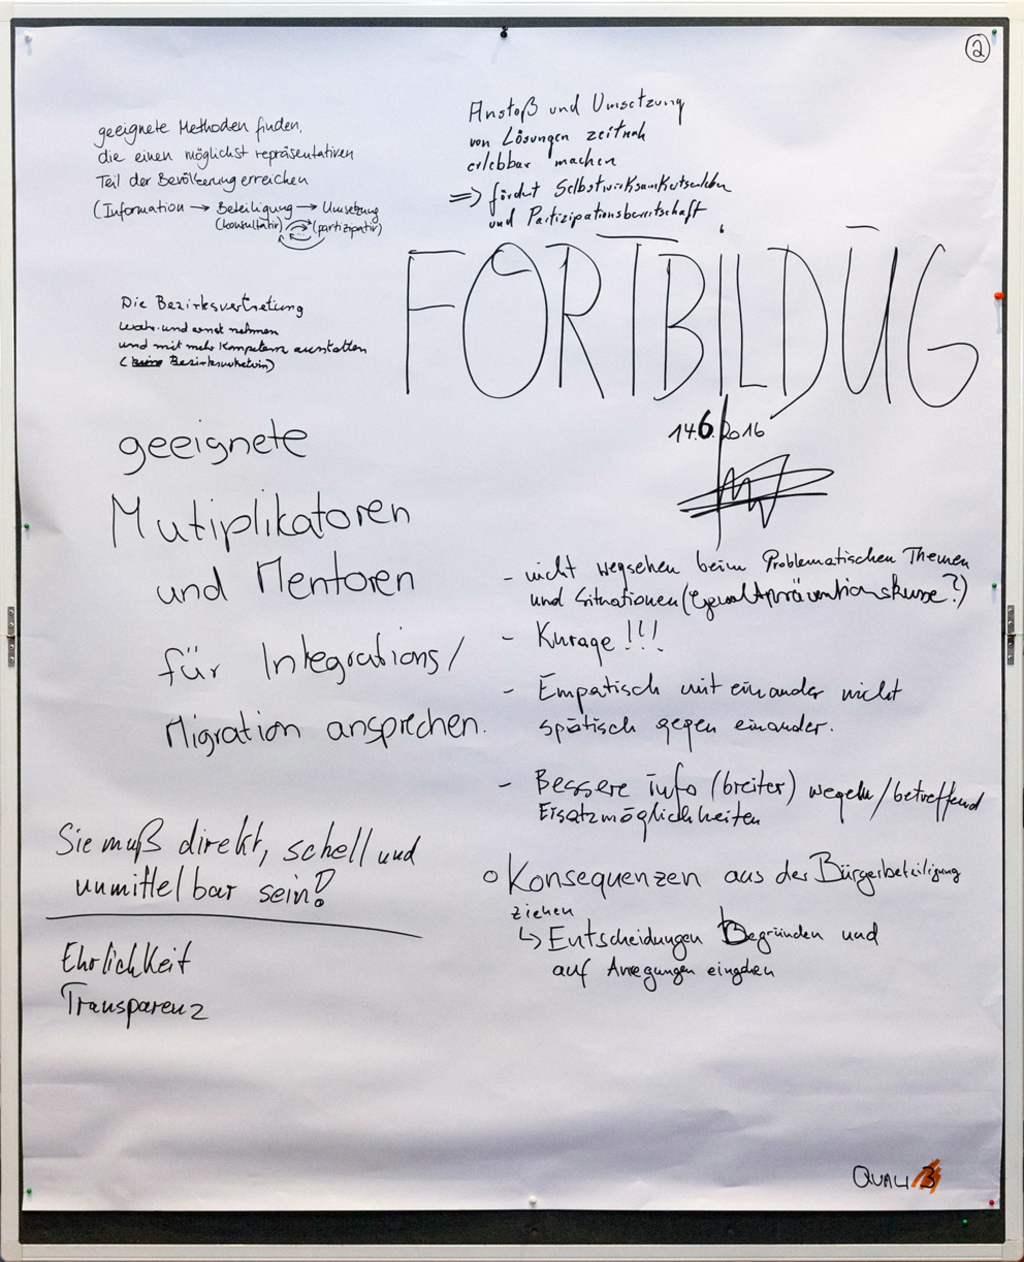 ②
geeignete Methoden finden,
die einen möglichst repräsentativen
Teil der Bevölkerung erreichen
(Information → Beteiligung → Umsetzung
(konsultativ) (partizipativ)
Anstoß und Umsetzung
von Lösungen zeitnah
erlebbar machen
=> fördert Selbstwirksamkeitserleben
und Partizipationsbereitschaft
Die Bezirksvertretung
wahr- und ernst nehmen
und mit mehr Kompetenz ausstatten
Bezirksvertreterin)
FORTBILDUG
14.6.2016
geeignete
Mutiplikatoren
und Mentoren
für Integrations/
Migration ansprechen.
- nicht wegsehen beim Problematischen Themen
und Situationen (Gewaltpräventionskurse?)
- Kurage!!!
- Empatisch mit einander nicht
spötisch gegen einander.
- Bessere info (breiter) wegeln/betreffend
Eisatzmöglichkeiten
Sie muß direkt, schell und
unmittelbar sein!
Ehrlichkeit
Transparenz
o Konsequenzen aus der Bürgerbeteiligung
ziehen
↳ Entscheidungen Begründen und
auf Anregungen eingehen
QUALI 3